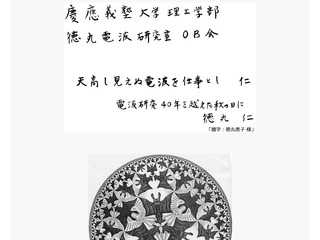 慶應義塾大学理工学部
徳丸電波研究室 OB会
天高し見えぬ電波を仕事とし 仁
電波研究40年を越えた秋の日に
徳丸 仁
「題字:徳丸恵子 様」